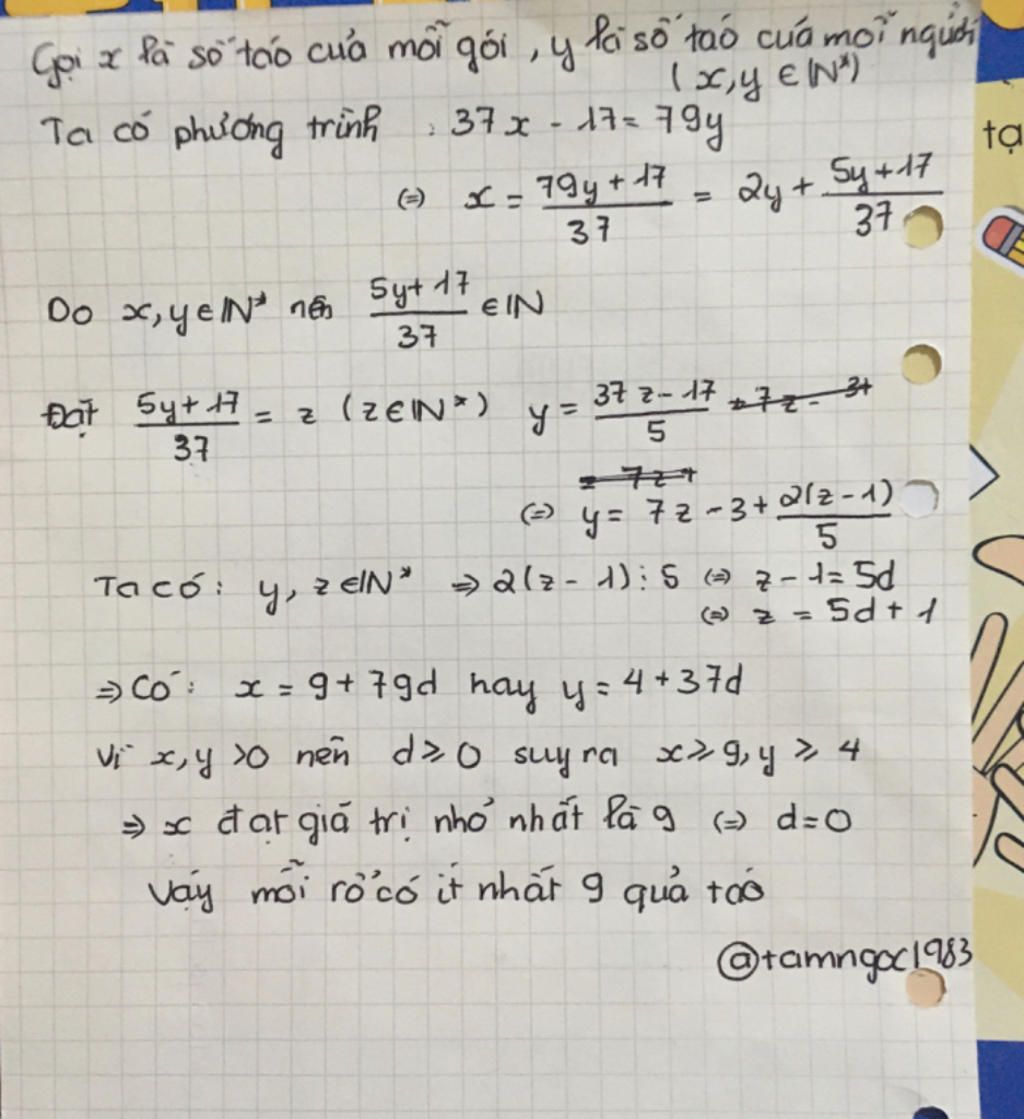 Gọi x là số táo của mỗi gói, y là số táo của mỗi người
(x,y ∈ N*)
Ta có phương trình : 37x - 17 = 79y
(=) x = \frac{79y + 17}{37} = 2y + \frac{5y + 17}{37}
Do x, y ∈ N* nên \frac{5y + 17}{37} ∈ N
Đặt \frac{5y + 17}{37} = z (z ∈ N*) y = \frac{37z - 17}{5}
(=) y = 7z - 3 + \frac{2(z - 1)}{5}
Ta có: y, z ∈ N* => 2(z - 1) ⋮ 5 (=) z - 1 = 5d
(=) z = 5d + 1
=> Có: x = 9 + 79d hay y = 4 + 37d
Vì x, y > 0 nên d ≥ 0 suy ra x ≥ 9, y ≥ 4
=> x đạt giá trị nhỏ nhất là 9 (=) d = 0
Vậy mỗi rổ có ít nhất 9 quả táo
@tamngoc1983
tạ